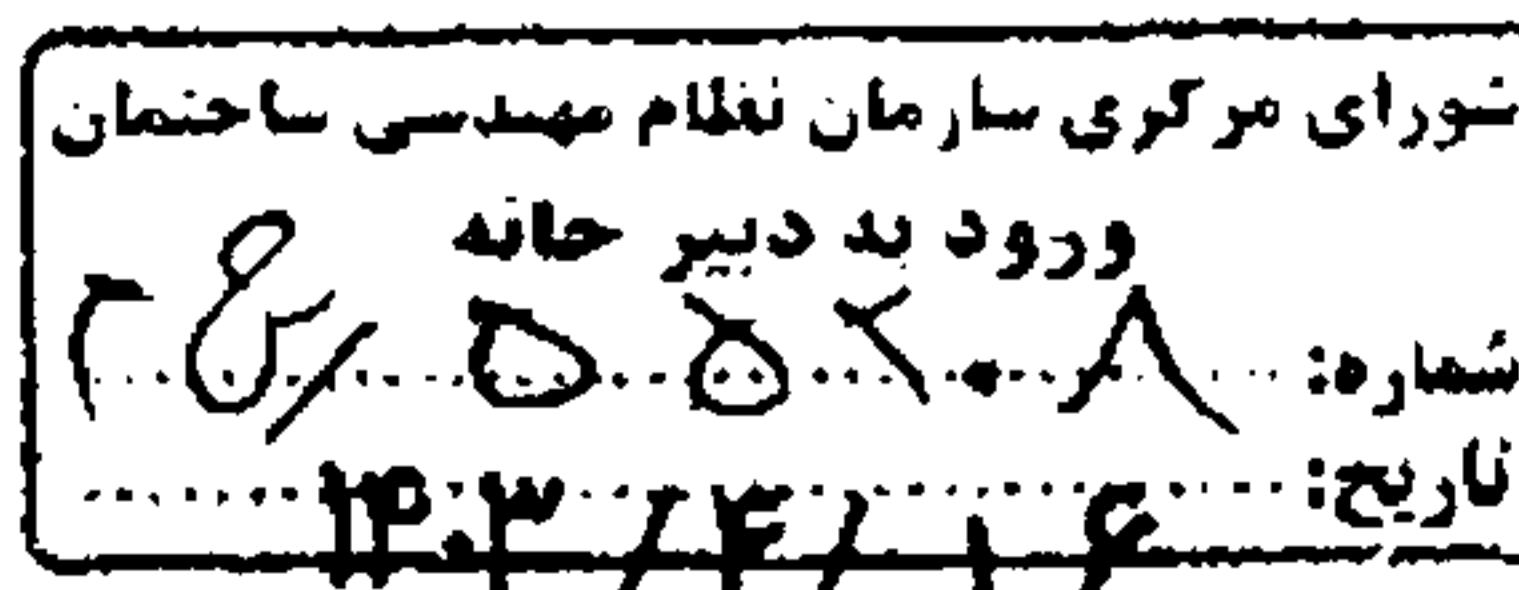 شورای مرکزی سازمان نظام مهندسی ساختمان
ورود به دبیرخانه
شماره:
تاریخ: ۱۴۰۳/۴/۱۶